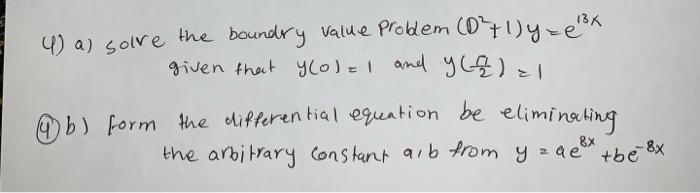 4) a) solve the boundry value problem (D²+1)y=e¹³ˣ
given that y(0)=1 and y(π/2)=1
4) b) form the differential equation be eliminating
the arbitrary constant a,b from y = ae⁸ˣ +be⁻⁸ˣ